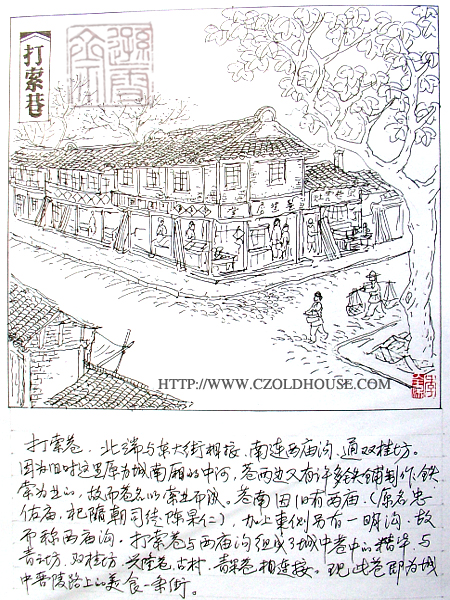 打索巷
HTTP://WWW.CZOLDHOUSE.COM
打索巷,北端与东大街相接,南连西庙沟,通双桂坊。
因为旧时这里原为城南厢的中河,巷两边又有许多铁铺制作铁
索为业的,故而巷名以索业而成。巷南因旧有西庙,(原名忠
佑庙,祀隋朝司徒陈杲仁),加上东侧另有一明沟,故
而称西庙沟。打索巷与西庙沟组成了城中巷中的精华,与
青云坊、双桂坊、兴隆巷、古村、青果巷相连接。现此巷即为城
中晋陵路上的美食一条街。